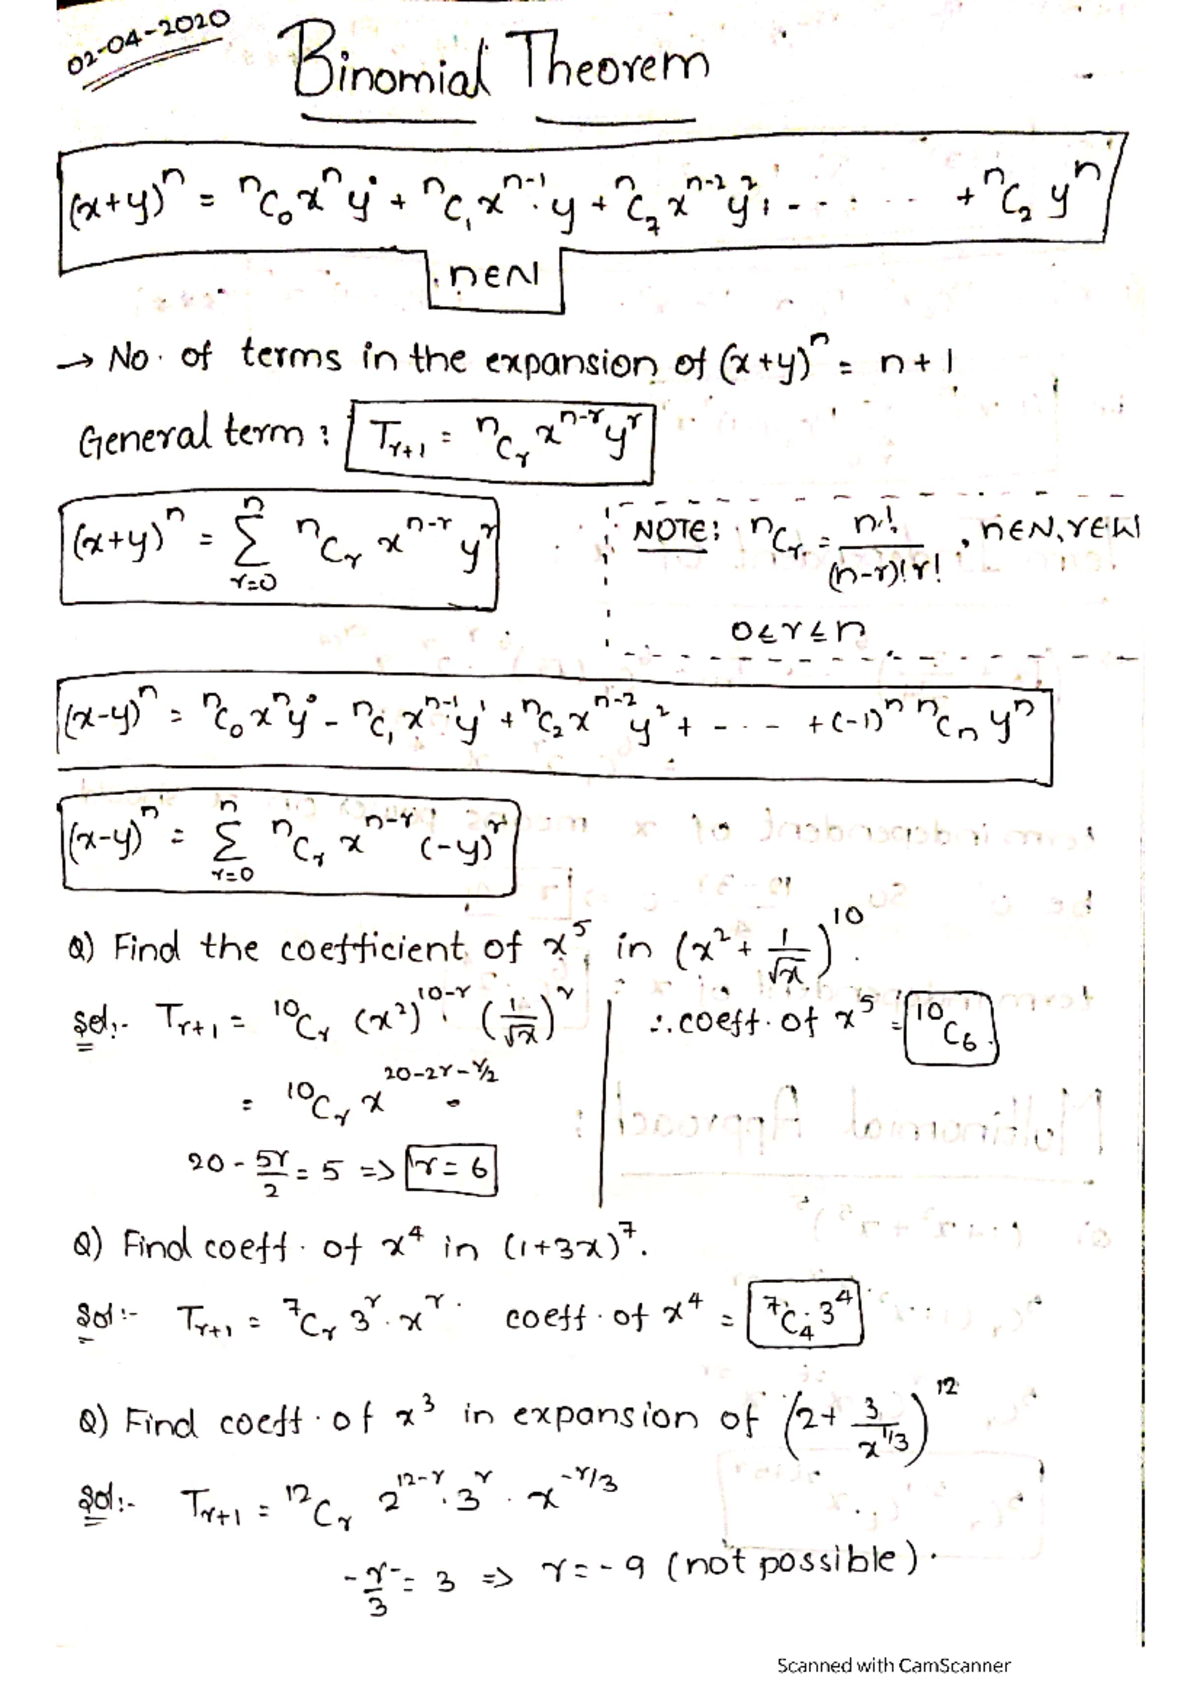 02-04-2020
Binomial Theorem
(x+y)^n = ^nC_0 x^n y^0 + ^nC_1 x^{n-1}·y + ^nC_2 x^{n-2} y^2 + - - - · · · · + ^nC_2 y^n
n∈N
→ No. of terms in the expansion of (x+y)^n = n+1
General term : T_{r+1} = ^nC_r x^{n-r} y^r
(x+y)^n = Σ_{r=0}^{n} ^nC_r x^{n-r} y^r
NOTE: ^nC_r = n!/((n-r)! r!) , n∈N, r∈W
0≤r≤n
(x-y)^n = ^nC_0 x^n y^0 - ^nC_1 x^{n-1} y^1 + ^nC_2 x^{n-2} y^2 + - · - - + (-1)^n ^nC_n y^n
(x-y)^n = Σ_{r=0}^{n} ^nC_r x^{n-r} (-y)^r
Q) Find the coefficient of x^5 in (x^2 + 1/√x)^10.
Sol:- T_{r+1} = ^10C_r (x^2)^{10-r} · (1/√x)^r
= ^10C_r x^{20-2r-r/2}
20 - 5r/2 = 5 => r = 6
∴ coeff. of x^5 = ^10C_6.
Q) Find coeff. of x^4 in (1+3x)^7.
Sol:- T_{r+1} = ^7C_r 3^r · x^r. coeff. of x^4 = ^7C_4 · 3^4
Q) Find coeff. of x^3 in expansion of (2 + 3/x^{1/3})^12
Sol:- T_{r+1} = ^12C_r 2^{12-r} · 3^r · x^{-r/3}
-r/3 = 3 => r = -9 (not possible).
Scanned with CamScanner